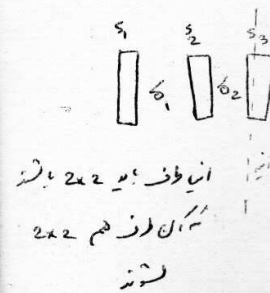 S1 S2 S3
δ1 δ2
این طرف باید 2×2 باشد
که آن طرف هم 2×2
شوند